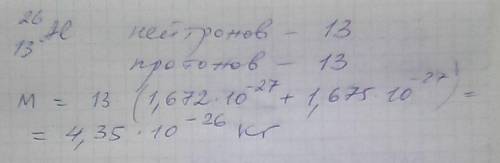 ²⁶₁₃Al нейтронов - 13
протонов - 13
M = 13 (1,672·10⁻²⁷ + 1,675·10⁻²⁷) =
= 4,35·10⁻²⁶ кг